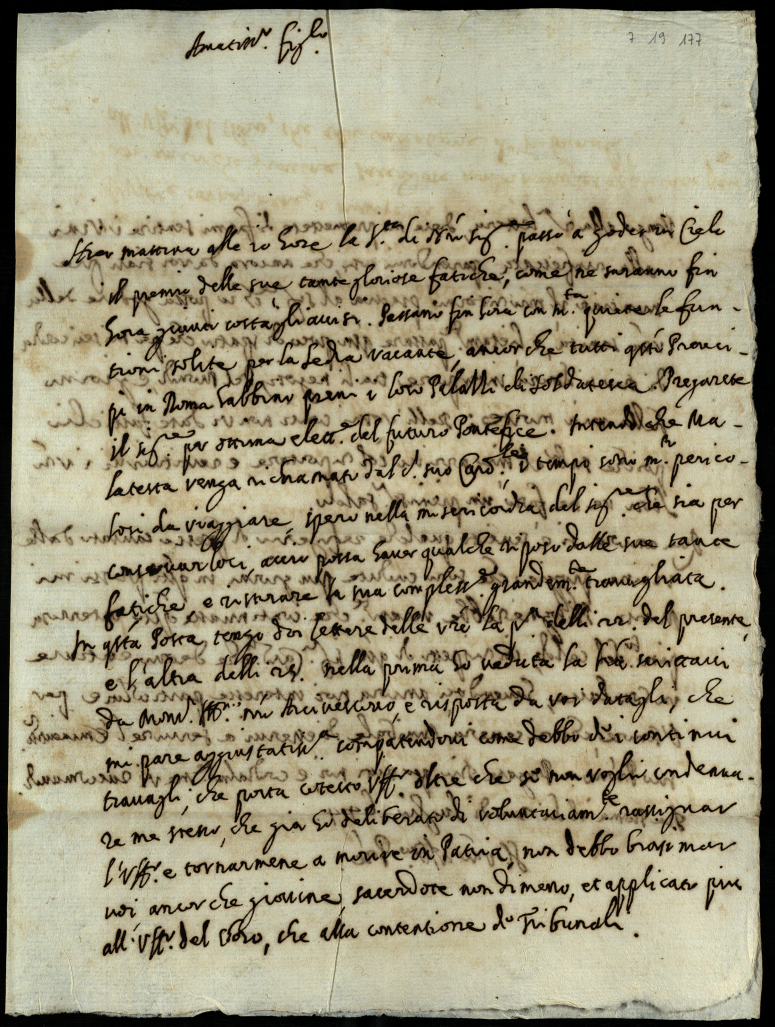 Amatiss.o figlo
7 19 177
Hier mattina alle 10 hore la S.tà di N'rò Sig.re passò à godere in Cielo
il premio delle sue tante gloriose fatiche, come ne saranno fin
hora giunti costà gli avisi. Passano fin hora con m.ta quiete le fun-
tioni solite per la Sedia vacante, ancor che tutti q'sti Prenci-
pi in Roma habbino pieni i loro Palazzi di soldatesca. Pregarete
il Sig.re per ottima elett.e del futuro Pontefice. Intendo che Ma-
latesta venga richiamato dal d.o suo Card.le i tempi sono m.to perico-
losi da viaggiare, spero nella misericordia del Sig.re che sia per
conservarloci, accio possa haver qualche riposo dalle sue tante
fatiche, e ristorare la sua compless.e grandem.te travagliata.
In q'sta Posta tengo doi lettere delle v're la p.a delli 22. del presente,
e l'altra delli 25. nella prima ho veduta la l'ra scrittavi
da Mons.r Ill.mo mio Arcivescovo, e risposta da voi datagli, che
mi pare aggiustatiss.a compatendovi come debbo de i continui
travagli, che porta cotesto Uff.o oltre che se non voglio condenna-
re me stesso, che gia ho deliberato di voluntariam.te rassignar
l'Uff.o e tornarmene a morire in Patria, non debbo biasimar
voi ancorche giovine, sacerdote nondimeno, et applicato più
all'Uff.o del Choro, che alla contentione de Tribunali.